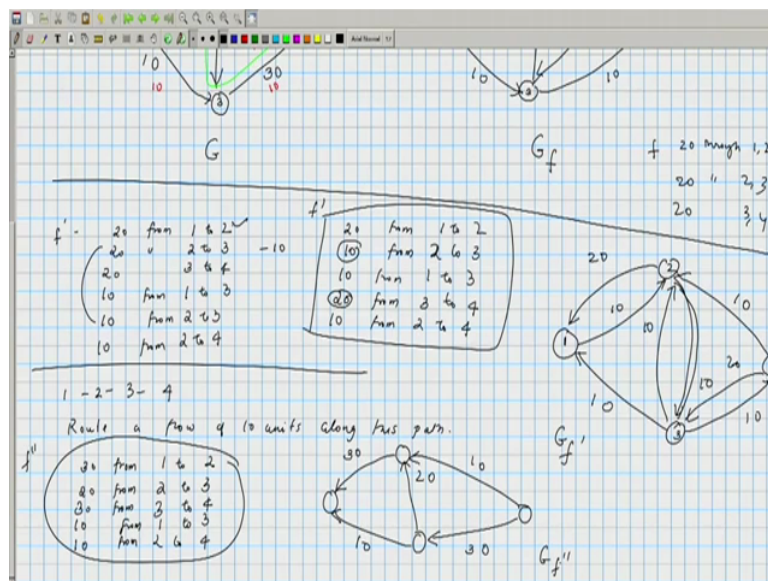 Arial Normal 12
10
30
10
10
3
10
10
3
G
G_f
f 20 through 1, 2
20 " 2, 3
20 3, 4
f' - 20 from 1 to 2 ✓
20 " 2 to 3 - 10
20 3 to 4
10 from 1 to 3
10 from 2 to 3
10 from 2 to 4
f'
20 from 1 to 2
10 from 2 to 3
10 from 1 to 3
20 from 3 to 4
10 from 2 to 4
20
2
10
10
10
1
10
20
10
10
3
G_f'
1 - 2 - 3 - 4
Route a flow of 10 units along this path.
f''
30 from 1 to 2
20 from 2 to 3
30 from 3 to 4
10 from 1 to 3
10 from 2 to 4
30
20
10
10
30
G_f''